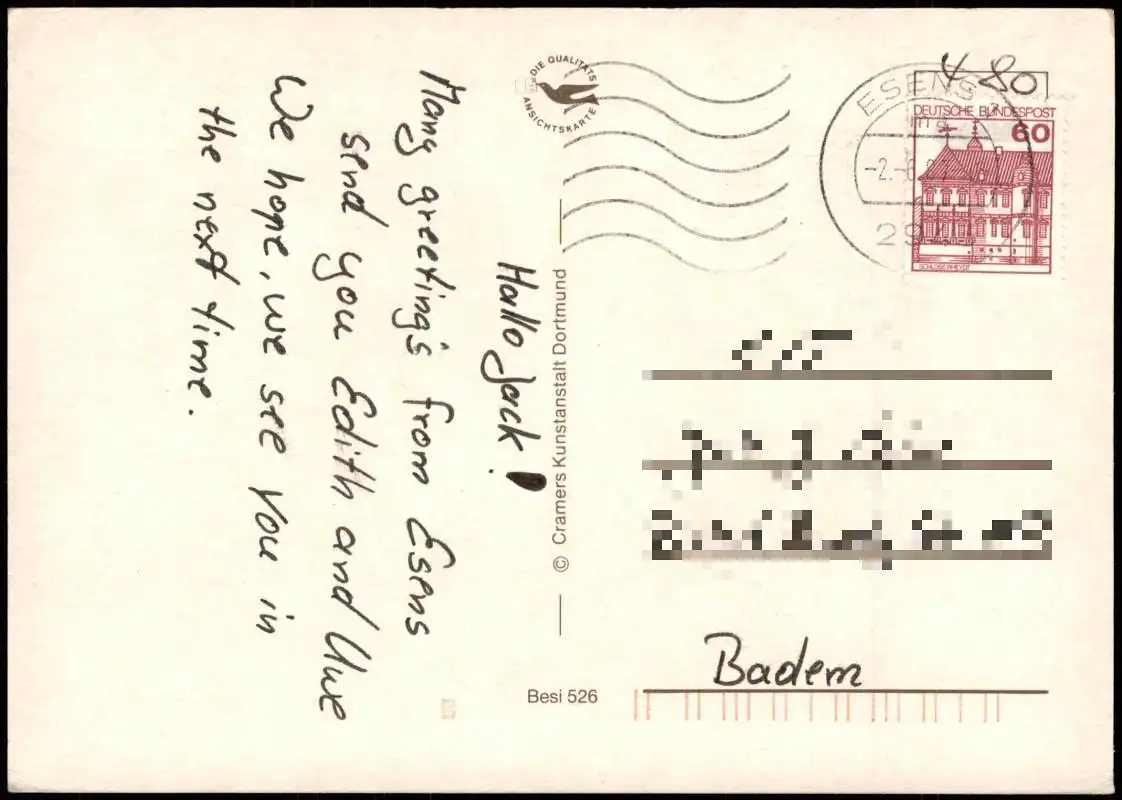 Hallo Jack!
Many greeting's from Esens
send you Edith and Uwe
We hope, we see you in
the next time.
DIE QUALITÄTS
ANSICHTSKARTE
© Cramers Kunstanstalt Dortmund
Besi 526
4 80
ESENS
DEUTSCHE BUNDESPOST
60
Badem